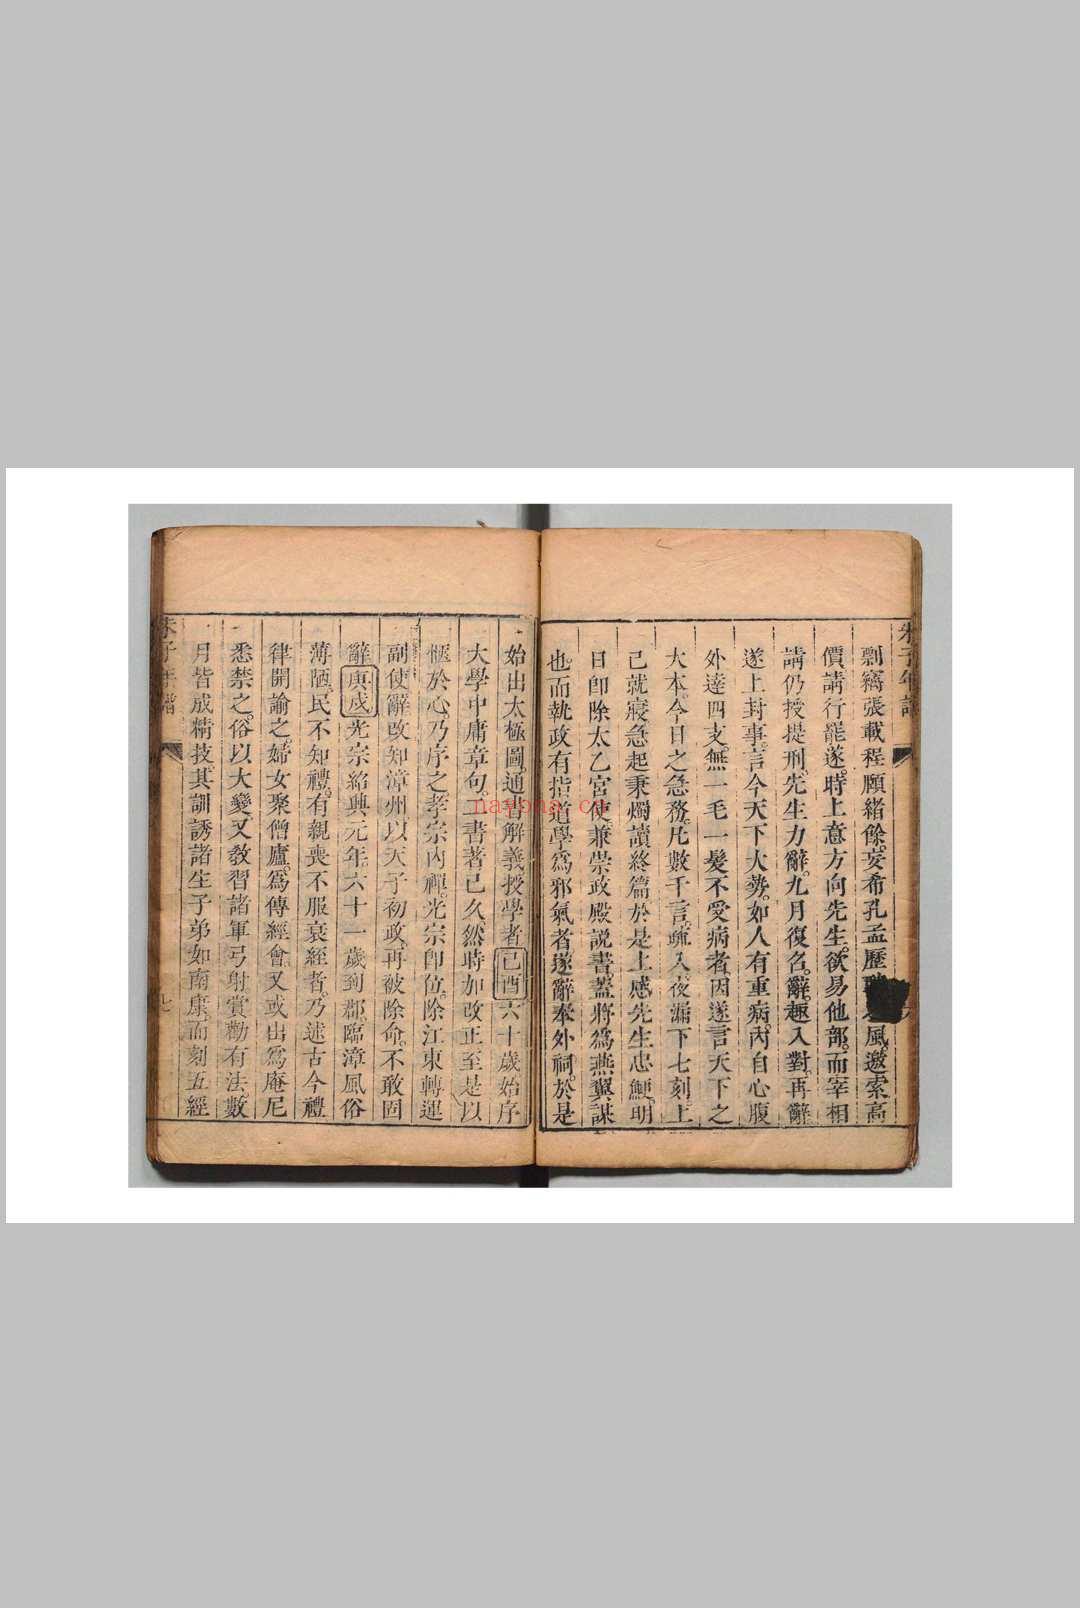 朱子年譜
剽竊張載程頤緒餘妄希孔孟歷聘 風邀索高
價請行罷遂時上意方向先生欲易他部而宰相
請仍授提刑先生力辭九月復召辭趣入對再辭
遂上封事言今天下大勢如人有重病內自心腹
外達四支無一毛一髮不受病者因遂言天下之
大本今日之急務凡數千言疏入夜漏下七刻上
已就寢急起秉燭讀終篇於是上感先生忠鯁明
日即除太乙宮使兼崇政殿說書蓋將爲燕翼謀
也而執政有指道學爲邪氣者遂辭奉外祠於是
始出太極圖通書解義授學者己酉六十歲始序
大學中庸章句二書著已久然時加改正至是以
愜於心乃序之孝宗內禪光宗即位除江東轉運
副使辭改知漳州以天子初政再被除命不敢固
辭庚戌光宗紹興元年六十一歲到郡臨漳風俗
薄陋民不知禮有親喪不服衰絰者乃述古今禮
律開諭之婦女聚僧廬爲傳經會又或出爲庵尼
悉禁之俗以大變又教習諸軍弓射賞勸有法數
月皆成精技其訓誘諸生子弟如南康而刻五經
朱子年譜
七
nayona.cn